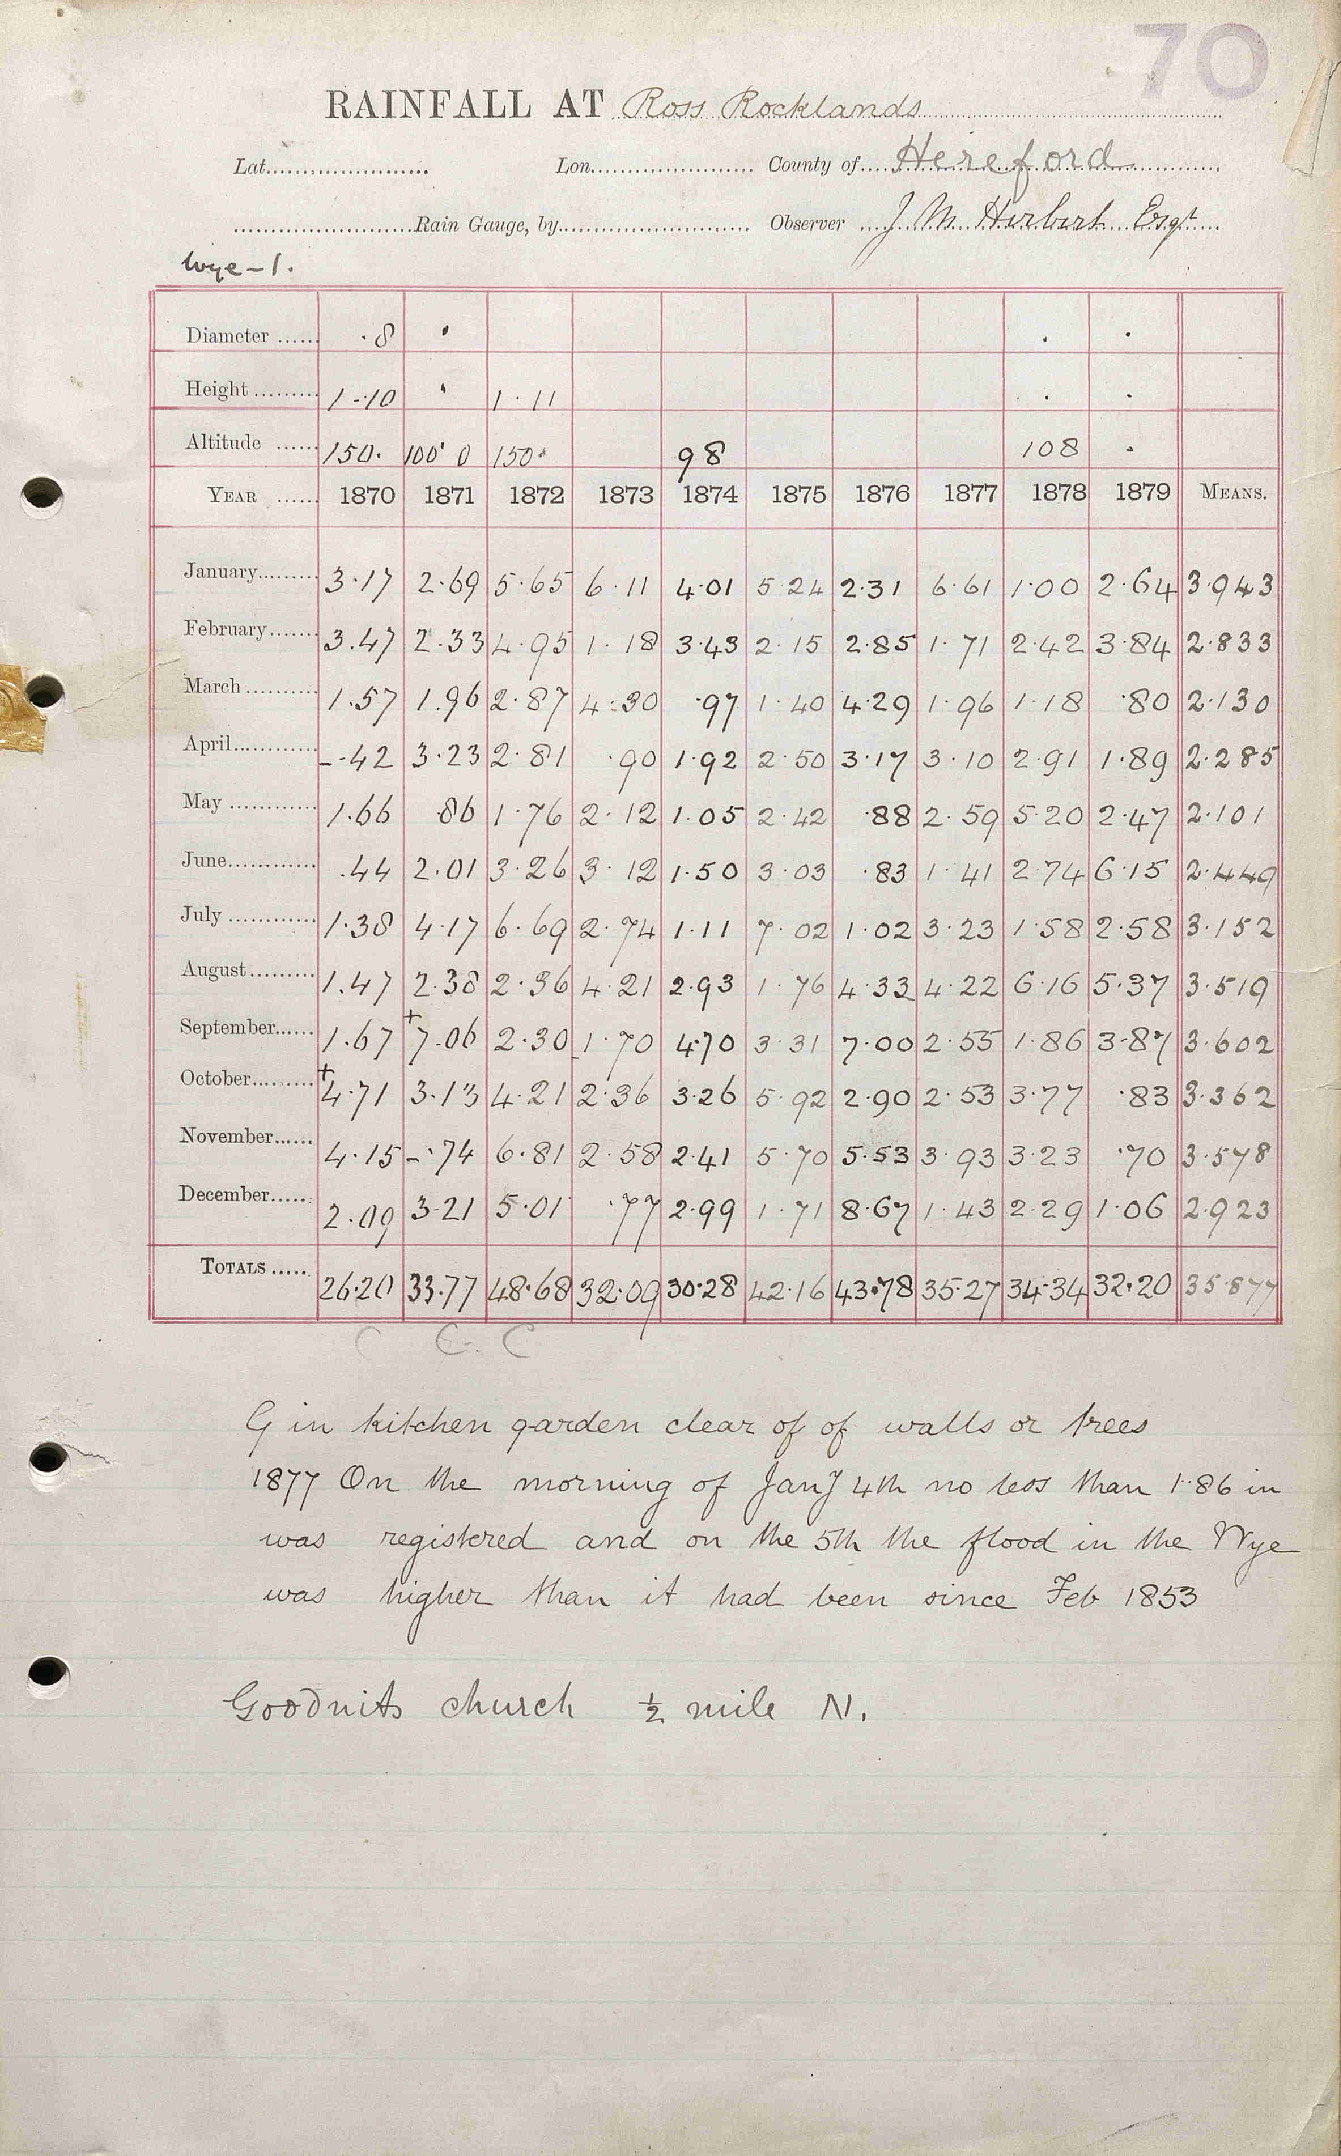 70
RAINFALL AT Ross Rocklands
Lat. Lon. County of Hereford
Rain Gauge, by Observer J M Herbert Esqr
Wye-1.
Diameter ...... .8 " . .
Height ......... 1-10 " 1.11 . .
Altitude ...... 150. 100' 0 150. 98 108 .
YEAR ...... 1870 1871 1872 1873 1874 1875 1876 1877 1878 1879 MEANS.
January......... 3.17 2.69 5.65 6.11 4.01 5.24 2.31 6.61 1.00 2.64 3.943
February....... 3.47 2.33 4.95 1.18 3.43 2.15 2.85 1.71 2.42 3.84 2.833
March .......... 1.57 1.96 2.87 4.30 .97 1.40 4.29 1.96 1.18 .80 2.130
April............ -.42 3.23 2.81 .90 1.92 2.50 3.17 3.10 2.91 1.89 2.285
May ............ 1.66 .86 1.76 2.12 1.05 2.42 .88 2.59 5.20 2.47 2.101
June............ .44 2.01 3.26 3.12 1.50 3.03 .83 1.41 2.74 6.15 2.449
July ............ 1.38 4.17 6.69 2.74 1.11 7.02 1.02 3.23 1.58 2.58 3.152
August......... 1.47 2.38 2.36 4.21 2.93 1.76 4.33 4.22 6.16 5.37 3.519
September...... 1.67 +7.06 2.30 1.70 4.70 3.31 7.00 2.55 1.86 3.87 3.602
October......... +4.71 3.13 4.21 2.36 3.26 5.92 2.90 2.53 3.77 .83 3.362
November...... 4.15 -.74 6.81 2.58 2.41 5.70 5.53 3.93 3.23 .70 3.578
December...... 2.09 3.21 5.01 .77 2.99 1.71 8.67 1.43 2.29 1.06 2.923
TOTALS ..... 26.20 33.77 48.68 32.09 30.28 42.16 43.78 35.27 34.34 32.20 35.877
C C. C
G in kitchen garden clear of of walls or trees
1877 On the morning of Jany 4th no less than 1.86 in
was registered and on the 5th the flood in the Wye
was higher than it had been since Feb 1853
Goodrits church ½ mile N.